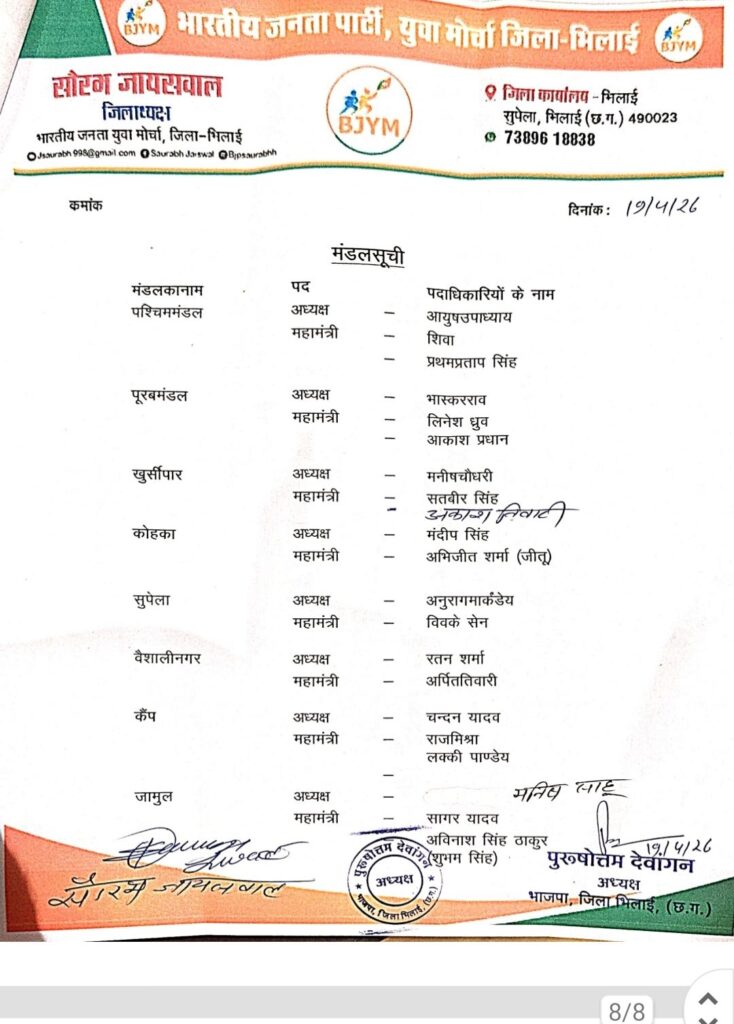 BJYM भारतीय जनता पार्टी, युवा मोर्चा जिला-भिलाई BJYM
सौरभ जायसवाल
जिलाध्यक्ष
भारतीय जनता युवा मोर्चा, जिला-भिलाई
Jsaurabh998@gmail.com Saurabh Jaiswal Bjpsaurabhh
BJYM
जिला कार्यालय - भिलाई
सुपेला, भिलाई (छ.ग.) 490023
73896 18838
कमांक दिनांक : 19/4/26
मंडलसूची
मंडलकानाम पद पदाधिकारियों के नाम
पश्चिममंडल अध्यक्ष – आयुषउपाध्याय
महामंत्री – शिवा
– प्रथमप्रताप सिंह
पूरबमंडल अध्यक्ष – भास्करराव
महामंत्री – लिनेश ध्रुव
– आकाश प्रधान
खुर्सीपार अध्यक्ष – मनीषचौधरी
महामंत्री – सतबीर सिंह
– अकाश तिवारी
कोहका अध्यक्ष – मंदीप सिंह
महामंत्री – अभिजीत शर्मा (जीतू)
सुपेला अध्यक्ष – अनुरागमार्कंडेय
महामंत्री – विवके सेन
वैशालीनगर अध्यक्ष – रतन शर्मा
महामंत्री – अर्पिततिवारी
कैंप अध्यक्ष – चन्दन यादव
महामंत्री – राजमिश्रा
लक्की पाण्डेय
–
जामुल अध्यक्ष – मनिष साहू
महामंत्री – सागर यादव
अविनाश सिंह ठाकुर
(शुभम सिंह)
सौरभ जायसवाल
पुरूषोत्तम देवांगन
अध्यक्ष
भाजपा, जिला भिलाई, (छ.ग.)
19/4/26
पुरूषोत्तम देवांगन
अध्यक्ष
भाजपा, जिला भिलाई, (छ.ग.)
8/8